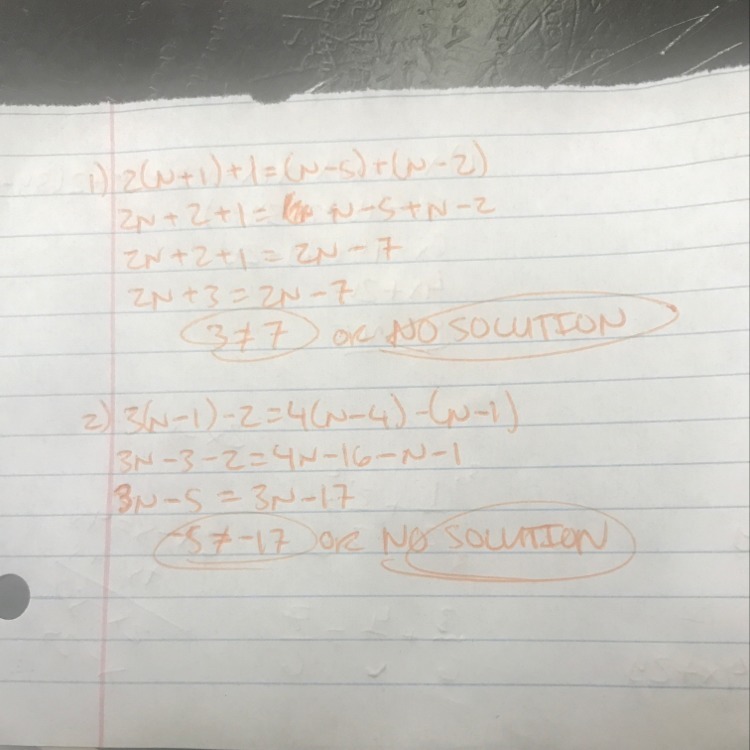 1) 2(N+1)+1=(N-5)+(N-2)
2N+2+1= N-5+N-2
2N+2+1=2N-7
2N+3=2N-7
3≠7 or NO SOLUTION
2) 3(N-1)-2=4(N-4)-(N-1)
3N-3-2=4N-16-N-1
3N-5=3N-17
-5≠-17 or NO SOLUTION